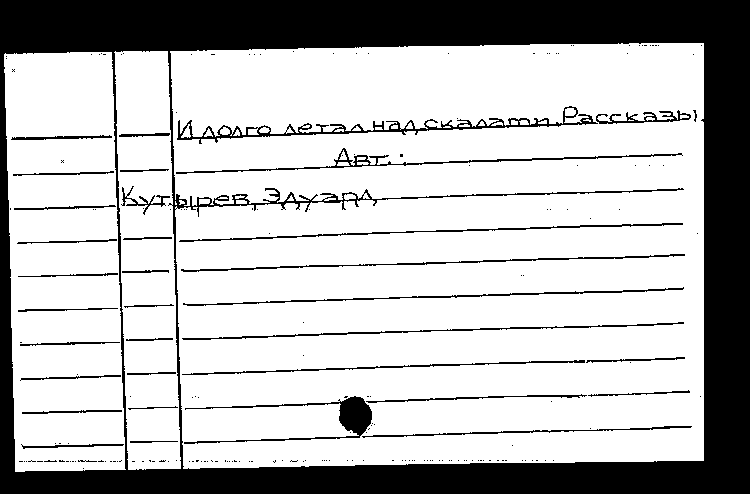 И долго летал над скалами. Рассказы.
Авт.:
Кутырев, Эдуард